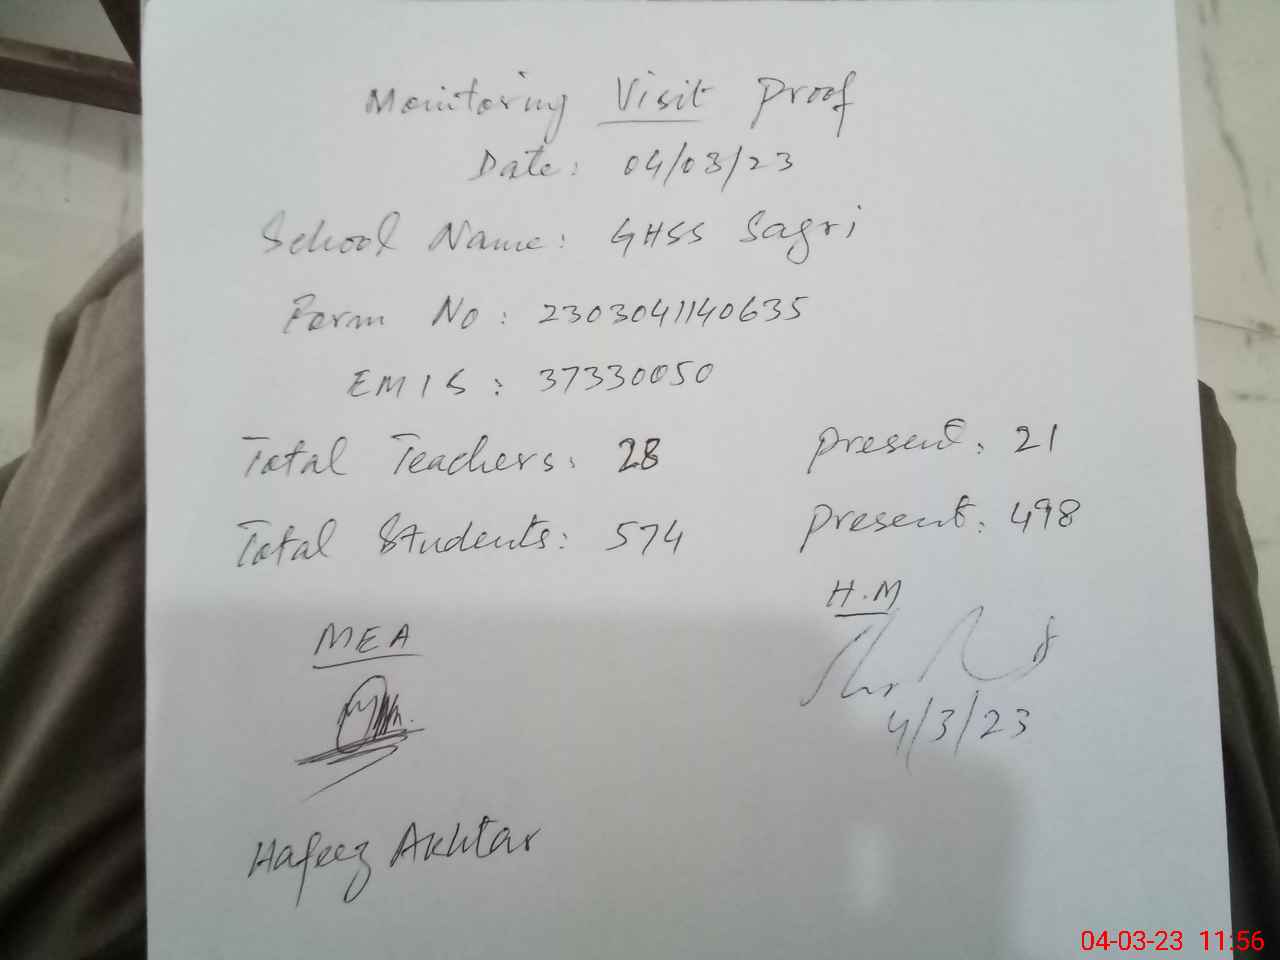 Monitoring Visit Proof
Date: 04/03/23
School Name: GHSS Sagri
Form No: 2303041140635
EMIS: 37330050
Total Teachers: 28 Present: 21
Total Students: 574 Present: 498
MEA H.M
4/3/23
Hafeez Akhtar
04-03-23 11:56